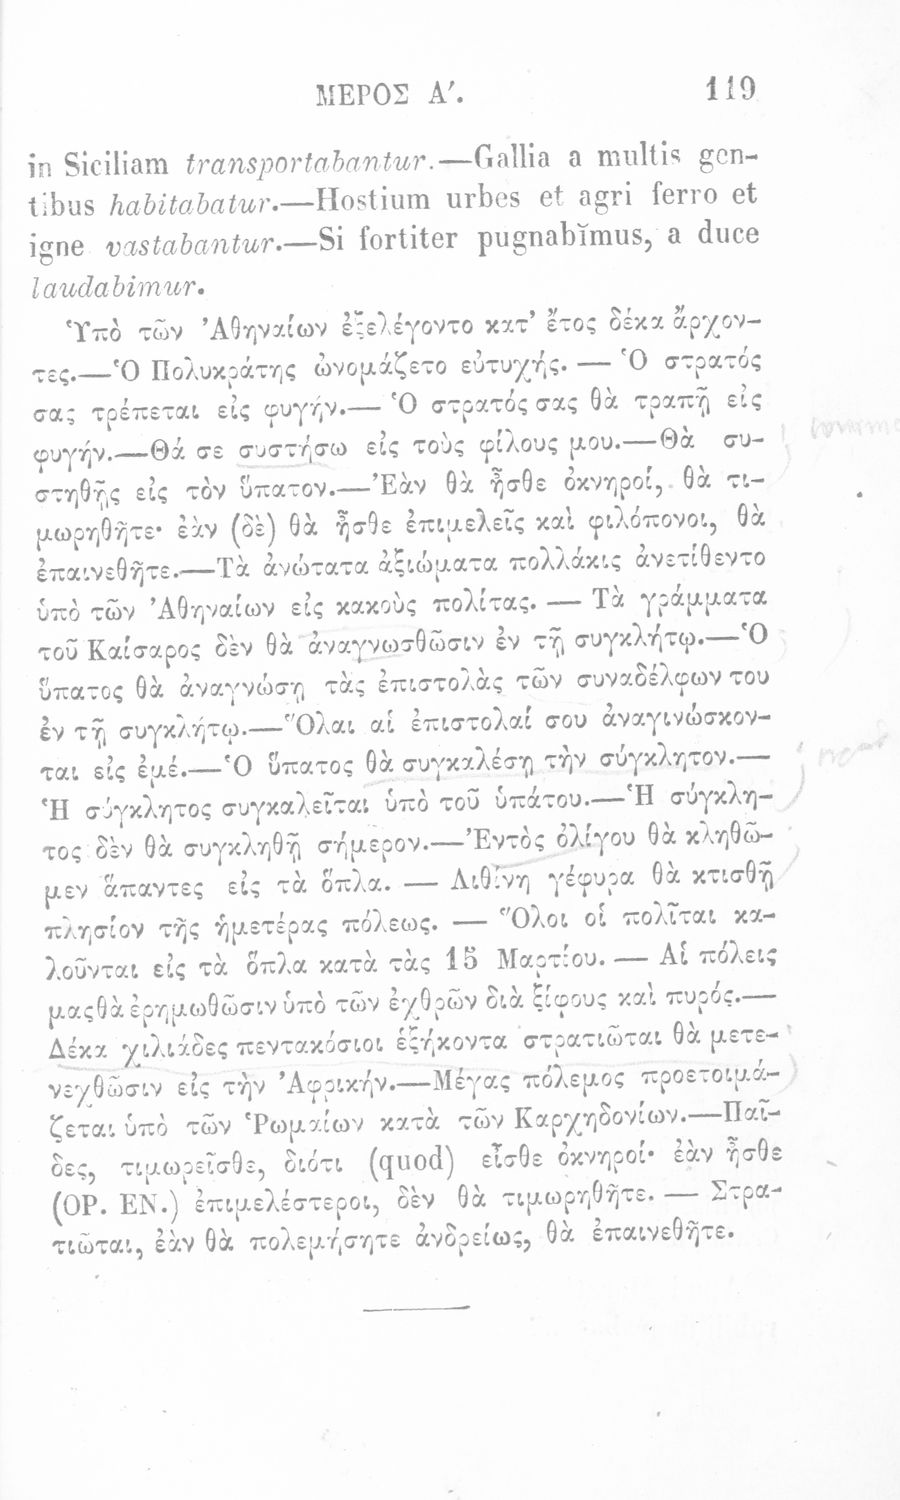 ΜΕΡΟΣ Α′. 119
in Siciliam transportabantur.—Gallia a multis gen-
tibus habitabatur.—Hostium urbes et agri ferro et
igne vastabantur.—Si fortiter pugnabĭmus, a duce
laudabimur.
Ὑπὸ τῶν Ἀθηναίων ἐξελέγοντο κατ’ ἔτος δέκα ἄρχον-
τες.—Ὁ Πολυκράτης ὠνομάζετο εὐτυχής. — Ὁ στρατός
σας τρέπεται εἰς φυγήν.— Ὁ στρατός σας θὰ τραπῇ εἰς
φυγήν.—Θά σε συστήσω εἰς τοὺς φίλους μου.—Θὰ συ-
στηθῇς εἰς τὸν ὕπατον.—Ἐὰν θὰ ἦσθε ὀκνηροί, θὰ τι-
μωρηθῆτε· ἐὰν (δὲ) θὰ ἦσθε ἐπιμελεῖς καὶ φιλόπονοι, θὰ
ἐπαινεθῆτε.—Τὰ ἀνώτατα ἀξιώματα πολλάκις ἀνετίθεντο
ὑπὸ τῶν Ἀθηναίων εἰς κακοὺς πολίτας. — Τὰ γράμματα
τοῦ Καίσαρος δὲν θὰ ἀναγνωσθῶσιν ἐν τῇ συγκλήτῳ.—Ὁ
ὕπατος θὰ ἀναγνώσῃ τὰς ἐπιστολὰς τῶν συναδέλφων του
ἐν τῇ συγκλήτῳ.—Ὅλαι αἱ ἐπιστολαί σου ἀναγινώσκον-
ται εἰς ἐμέ.—Ὁ ὕπατος θὰ συγκαλέσῃ τὴν σύγκλητον.—
Ἡ σύγκλητος συγκαλεῖται ὑπὸ τοῦ ὑπάτου.—Ἡ σύγκλη-
τος δὲν θὰ συγκληθῇ σήμερον.—Ἐντὸς ὀλίγου θὰ κληθῶ-
μεν ἅπαντες εἰς τὰ ὅπλα. — Λιθίνη γέφυρα θὰ κτισθῇ
πλησίον τῆς ἡμετέρας πόλεως. — Ὅλοι οἱ πολῖται κα-
λοῦνται εἰς τὰ ὅπλα κατὰ τὰς 15 Μαρτίου. — Αἱ πόλεις
μας θὰ ἐρημωθῶσιν ὑπὸ τῶν ἐχθρῶν διὰ ξίφους καὶ πυρός.—
Δέκα χιλιάδες πεντακόσιοι ἑξήκοντα στρατιῶται θὰ μετε-
νεχθῶσιν εἰς τὴν Ἀφρικήν.—Μέγας πόλεμος προετοιμά-
ζεται ὑπὸ τῶν Ῥωμαίων κατὰ τῶν Καρχηδονίων.—Παῖ-
δες, τιμωρεῖσθε, διότι (quod) εἶσθε ὀκνηροί· ἐὰν ἦσθε
(OP. EN.) ἐπιμελέστεροι, δὲν θὰ τιμωρηθῆτε. — Στρα-
τιῶται, ἐὰν θὰ πολεμήσητε ἀνδρείως, θὰ ἐπαινεθῆτε.